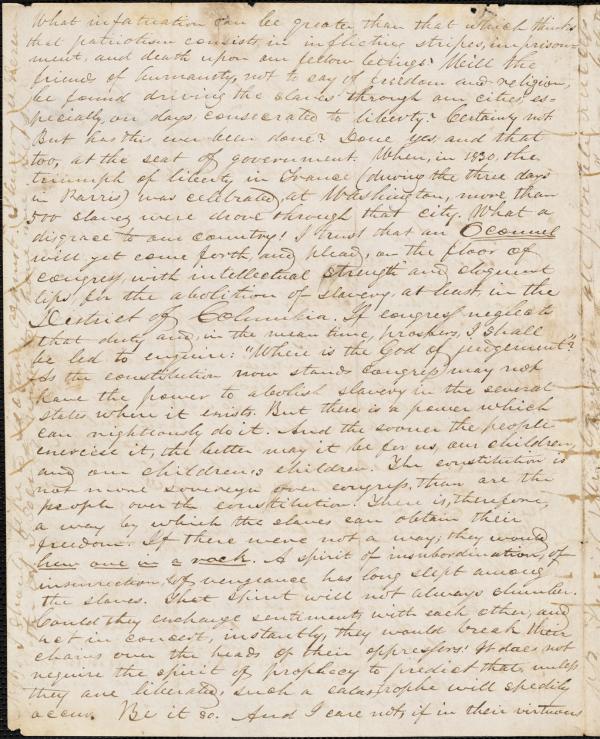 What infatuation can be greater than that which thinks
that patriotism consists in inflicting stripes, imprison-
ment, and death upon our fellow beings? Will the
friend of humanity, not to say of freedom and religion,
be found driving the slaves through our cities, es-
pecially, on days, consecrated to liberty? Certainly not
But has this ever been done? Done yes, and that
too, at the seat of government. When, in 1830, the
triumph of liberty, in France (during the three days
in Parris) was celebrated, at Washington, more than
500 slaves were drove through that city. What a
disgrace to our country! I trust that an Oconnel
will yet come forth, and plead, on the floor of
congress, with intellectual strength and eloquent
lips, for the abolition of slavery, at least, in the
District of Columbia. If congress neglects
that duty and, in the mean time, prospers, I shall
be led to enquire: "Where is the God of judgement"?
As the constitution now stands Congress may not
have the power to abolish slavery in the several
states where it exists. But there is a power which
can rightiously do it. And the sooner the people
exercise it, the better may it be for us, our children,
and our children,s children. The constitution is
not more sovereign over congress, than are the
people over the constitution. There is, therefore,
a way by which the slaves can obtain their
freedom. If there were not a way; they would
hew one in a rock. A spirit of insubordination, of
insurrection, & of vengeance has long slept among
the slaves. That spirit will not always slumber.
Could they exchange sentiments with each other, and
act in concert, instantly, they would break their
chains over the heads of their oppressors! It does not
require the spirit of prophecy to predict that, unless
they are liberated, such a catastrophe will spedily
occur. Be it so. And I care not, if in their virtuous